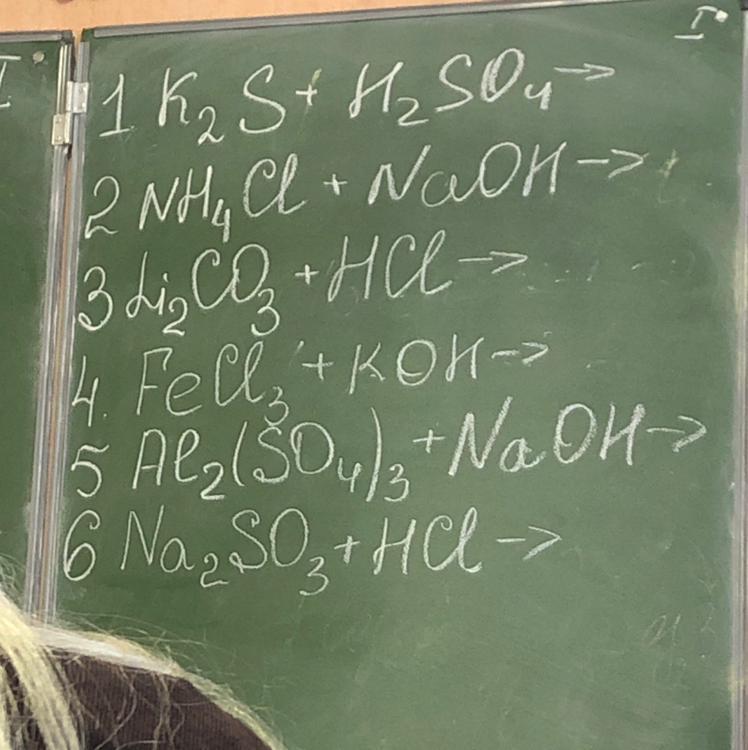 I
I
1 K₂S + H₂SO₄ →
2 NH₄Cl + NaOH →
3 Li₂CO₃ + HCl →
4. FeCl₃ + KOH →
5 Al₂(SO₄)₃ + NaOH →
6 Na₂SO₃ + HCl →